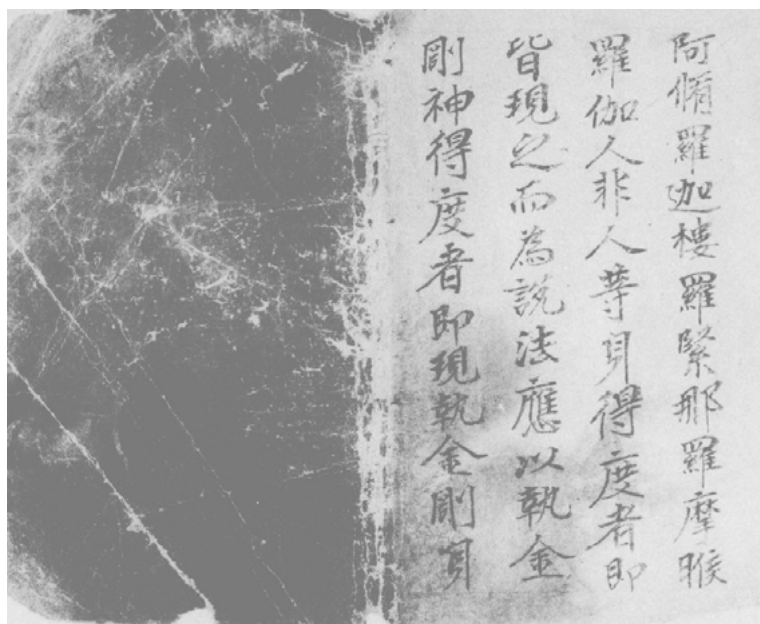 阿脩羅迦樓羅緊那羅摩睺
羅伽人非人等身得度者即
皆現之而為說法應以執金
剛神得度者即現執金剛身